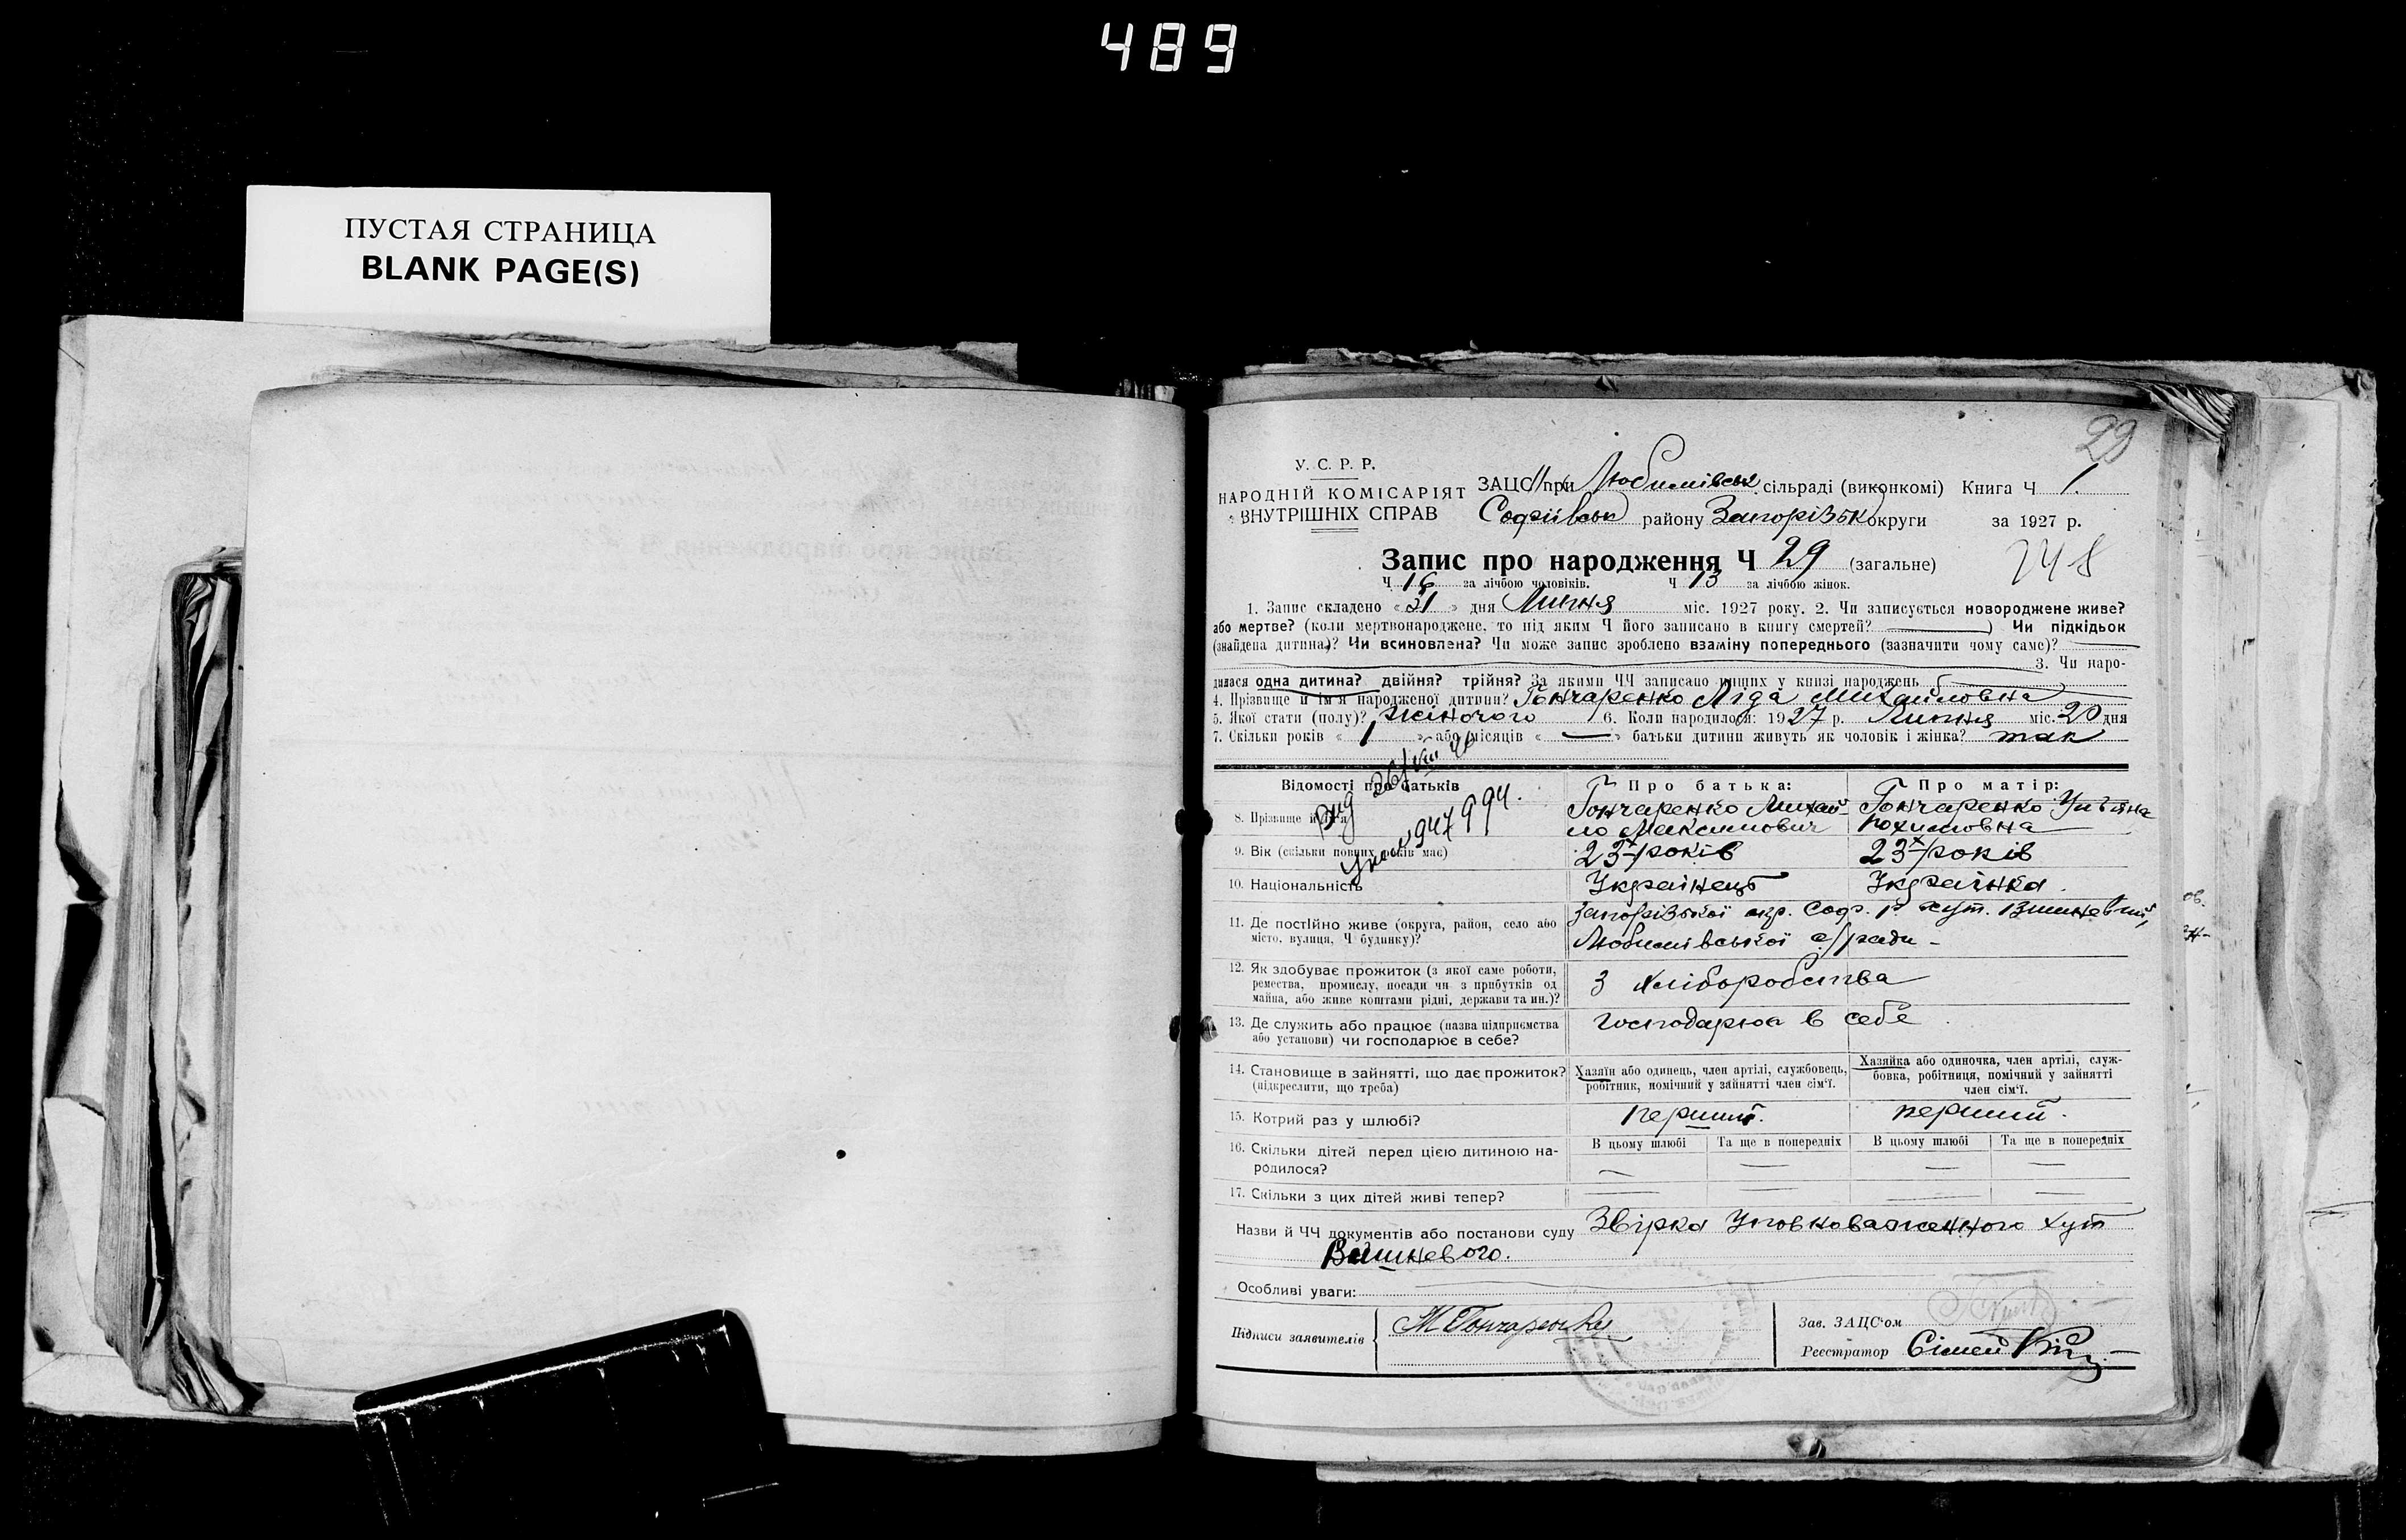 489
ПУСТАЯ СТРАНИЦА
BLANK PAGE(S)
29
У. С. Р. Р.
НАРОДНІЙ КОМІСАРІЯТ
ВНУТРІШНІХ СПРАВ
ЗАЦС при Любимівськ сільраді (виконкомі) Книга Ч 1.
Софіївськ району Запорізьк округи за 1927 р.
Запис про народження Ч 29 (загальне)
248
Ч 16 за лічбою чоловіків. Ч 13 за лічбою жінок.
1. Запис складено « 31 » дня Липня міс. 1927 року. 2. Чи записується новороджене живе?
або мертве? (коли мертвонароджене, то під яким Ч його записано в книгу смертей? ) Чи підкідьок
(знайдена дитина)? Чи всиновлена? Чи може запис зроблено взаміну попереднього (зазначити чому саме)?
3. Чи наро-
дилася одна дитина? двійня? трійня? За якими ЧЧ записано інших у книзі народжень
4. Прізвище й ім'я народженої дитини? Гончаренко Ліда Михайловна
5. Якої стати (полу)? жіночого 6. Коли народилося: 1927 р. Липня міс. 20 дня
7. Скільки років « 1 » або місяців « — » батьки дитини живуть як чоловік і жінка? так
Відомості про батьків
Про батька:
Про матір:
947994.
8. Прізвище й ім'я
Гончаренко Михай-
ло Максимович
Гончаренко
9. Вік (скільки повних років має)
23 років
23 років
10. Національність
Українець
Українка.
11. Де постійно живе (округа, район, село або
місто, вулиця, Ч будинку)?
Запорізької окр. Соф. р. хут. Вишневий,
Любимівської с/ради -
12. Як здобуває прожиток (з якої саме роботи,
ремества, промислу, посади чи з прибутків од
майна, або живе коштами рідні, держави та ин.)?
З хліборобства
13. Де служить або працює (назва підприємства
або установи) чи господарює в себе?
Господарює в себе.
14. Становище в зайнятті, що дає прожиток?
(підкреслити, що треба)
Хазяїн або одинець, член артілі, службовець,
робітник, помічний у зайнятті член сім'ї.
Хазяйка або одиночка, член артілі, служ-
бовка, робітниця, помічний у зайнятті
член сім'ї.
15. Котрий раз у шлюбі?
перший.
перший.
16. Скільки дітей перед цією дитиною на-
родилося?
В цьому шлюбі
Та ще в попередніх
В цьому шлюбі
Та ще в попередніх
17. Скільки з цих дітей живі тепер?
Назви й ЧЧ документів або постанови суду Звірка Уповноваженного хут
Вишневого.
Особливі уваги:
Підписи заявителів
М Гончаренко
Зав. ЗАЦС'ом
Реєстратор